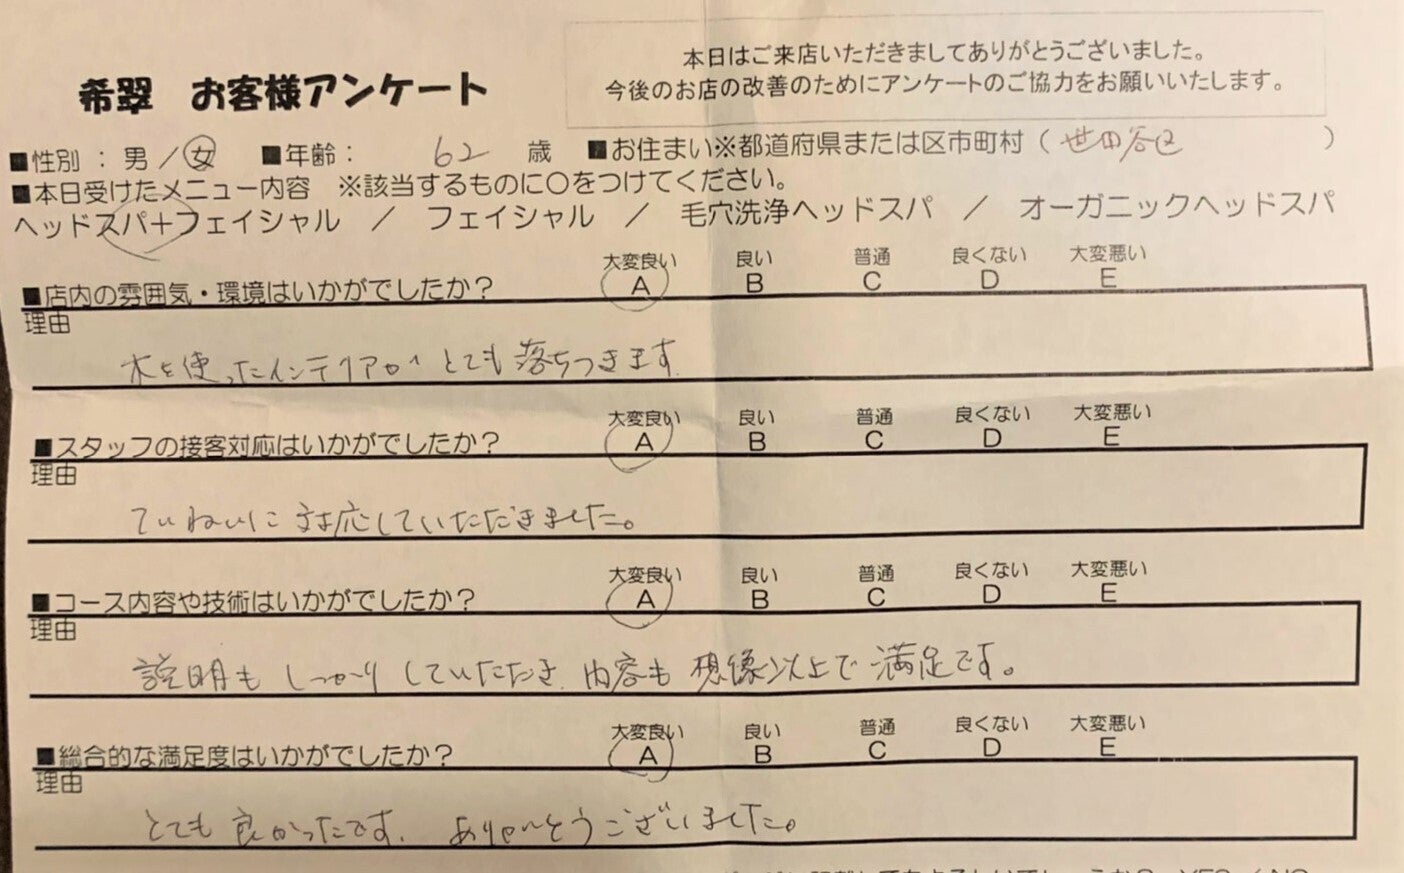 希翠 お客様アンケート
本日はご来店いただきましてありがとうございました。
今後のお店の改善のためにアンケートのご協力をお願いいたします。
■性別：男／女 ■年齢： 62 歳 ■お住まい※都道府県または区市町村（ 世田谷区 ）
■本日受けたメニュー内容 ※該当するものに○をつけてください。
ヘッドスパ＋フェイシャル ／ フェイシャル ／ 毛穴洗浄ヘッドスパ ／ オーガニックヘッドスパ
大変良い 良い 普通 良くない 大変悪い
■店内の雰囲気・環境はいかがでしたか？ A B C D E
理由
木を使ったインテリアがとても落ちつきます
大変良い 良い 普通 良くない 大変悪い
■スタッフの接客対応はいかがでしたか？ A B C D E
理由
ていねいに対応していただきました。
大変良い 良い 普通 良くない 大変悪い
■コース内容や技術はいかがでしたか？ A B C D E
理由
説明もしっかりしていただき、内容も想像以上で満足です。
大変良い 良い 普通 良くない 大変悪い
■総合的な満足度はいかがでしたか？ A B C D E
理由
とても良かったです。ありがとうございました。